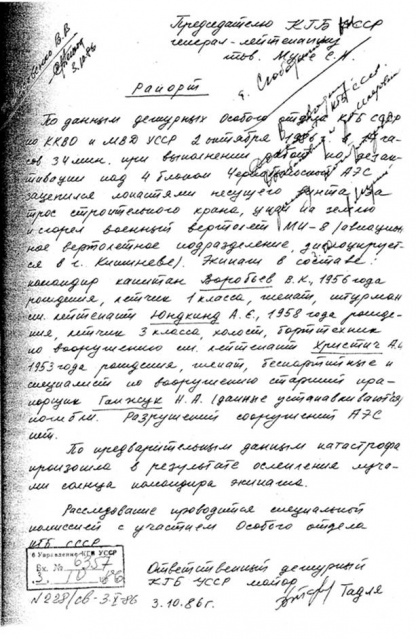 Председателю КГБ УССР
генерал-лейтенанту
тов. Мухе С.Н.
3.10.86
Рапорт
По данным дежурных Особого отдела КГБ СССР
по ККВО и МВД УССР 2 октября
34 мин. при выполнении работ по дезак-
тивации над 4 блоком Чернобыльской АЭС
зацепился лопастями несущего винта за
трос строительного крана, упал на землю
и сгорел военный вертолет МИ-8 /авиацион
ное вертолетное подразделение, дислоцирует-
ся в г. Кишиневе/. Экипаж в составе:
командир капитан Воробьев В.К., 1956 года
рождения, летчик 1 класса, женат, штурман
ст. лейтенант Юнгкинд А.Е., 1958 года рожде-
ния, летчик 3 класса, холост, борттехник
по вооружению ст. лейтенант Христич А.
1953 года рождения, женат, беспартийные и
специалист по вооружению старший пра-
порщик Ганжук Н.А. (данные устанавливаются)
погибли. Разрушений сооружений АЭС
нет.
По предварительным данным катастрофа
произошла в результате ослепления луча-
ми солнца командира экипажа.
Расследование проводится специальной
комиссией с участием Особого отдела
КГБ СССР
6 Управление КГБ УССР
Вх. № 6357
3. 10 86
№ 228/св-3-X-86
Ответственный дежурный
КГБ УССР майор
3.10.86г.